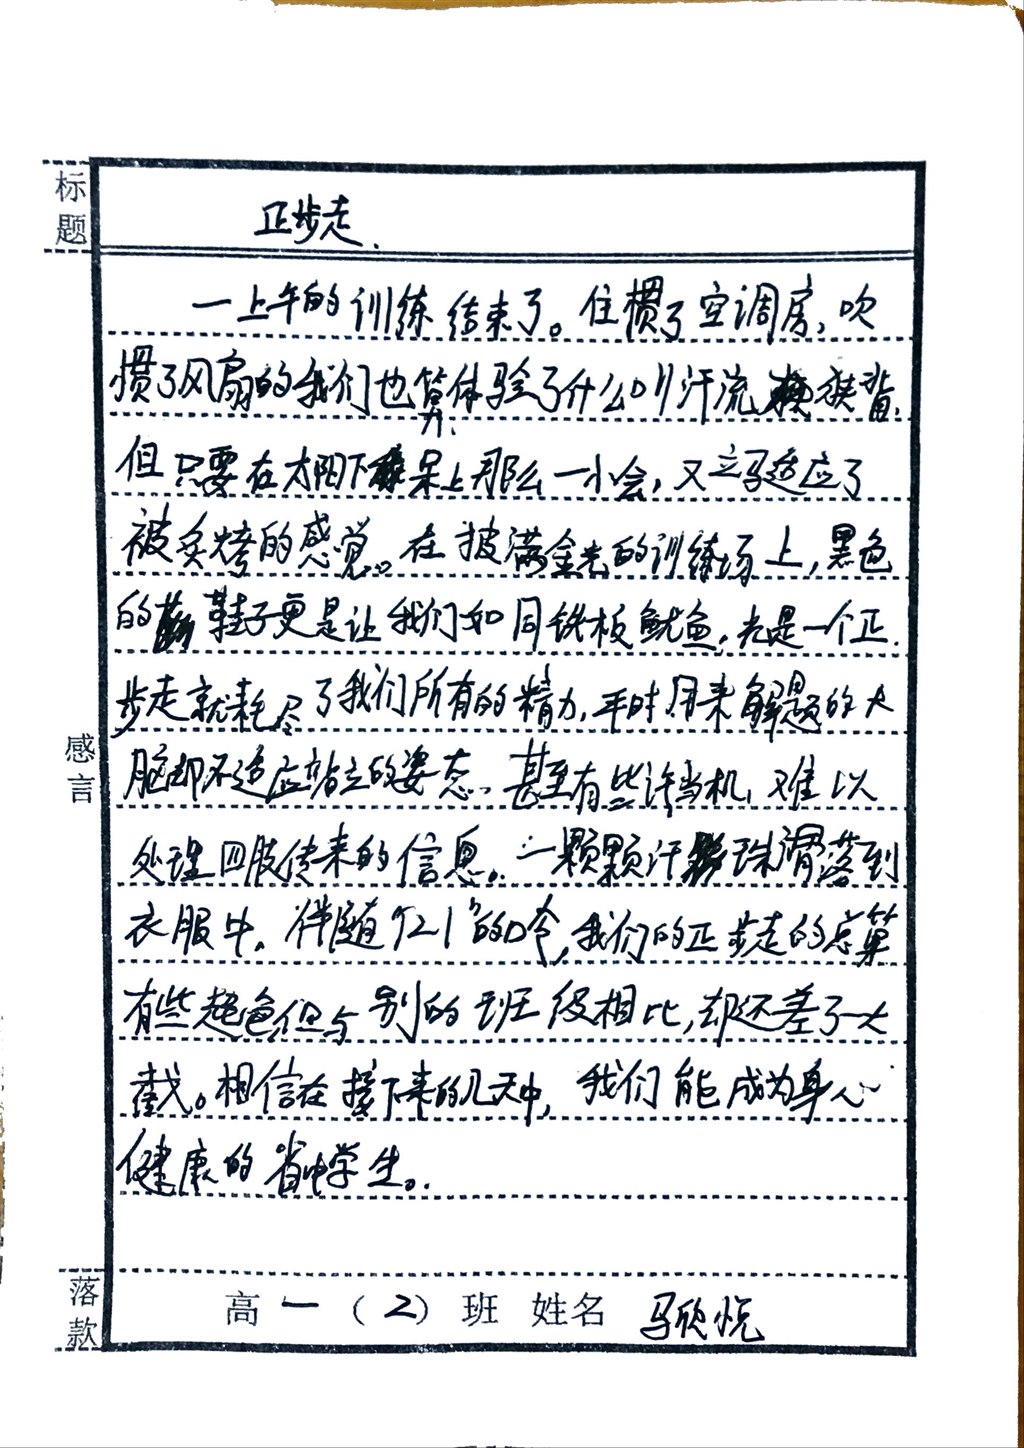 标题
正步走.
一上午的训练结束了。住惯了空调房、吹
惯了风扇的我们也算体验了什么叫汗流浃背.
但只要在太阳下呆上那么一小会,又立马适应了
被炙烤的感觉。在披满金光的训练场上,黑色
的鞋子更是让我们如同铁板鱿鱼,光是一个正
步走就耗尽了我们所有的精力,平时用来解题的大
脑却不适应站立的姿态、甚至有些许当机,难以
处理四肢传来的信息。一颗颗汗珠滑落到
衣服中,伴随“121”的口令,我们的正步走的总算
有些起色但与别的班级相比,却还差了一大
截。相信在接下来的几天中,我们能成为身心
健康的省中学生。
感言
落款
高一(2)班 姓名 马欣悦